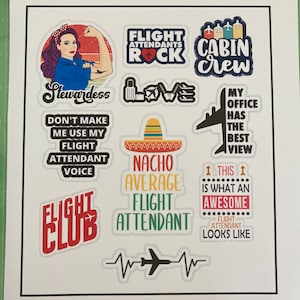 Stewardess
FLIGHT
ATTENDANTS
ROCK
CABIN
Crew
LOVE
MY
OFFICE
HAS
THE
BEST
VIEW
DON'T MAKE
ME USE MY
FLIGHT
ATTENDANT
VOICE
NACHO
AVERAGE
FLIGHT
ATTENDANT
THIS
IS WHAT AN
AWESOME
FLIGHT
ATTENDANT
LOOKS LIKE
FLIGHT
CLUB